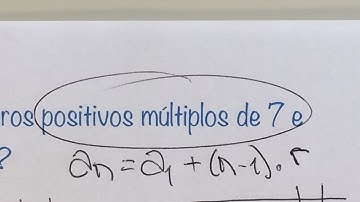 ros positivos múltiplos de 7 e
? an = a1 + (n-1).r